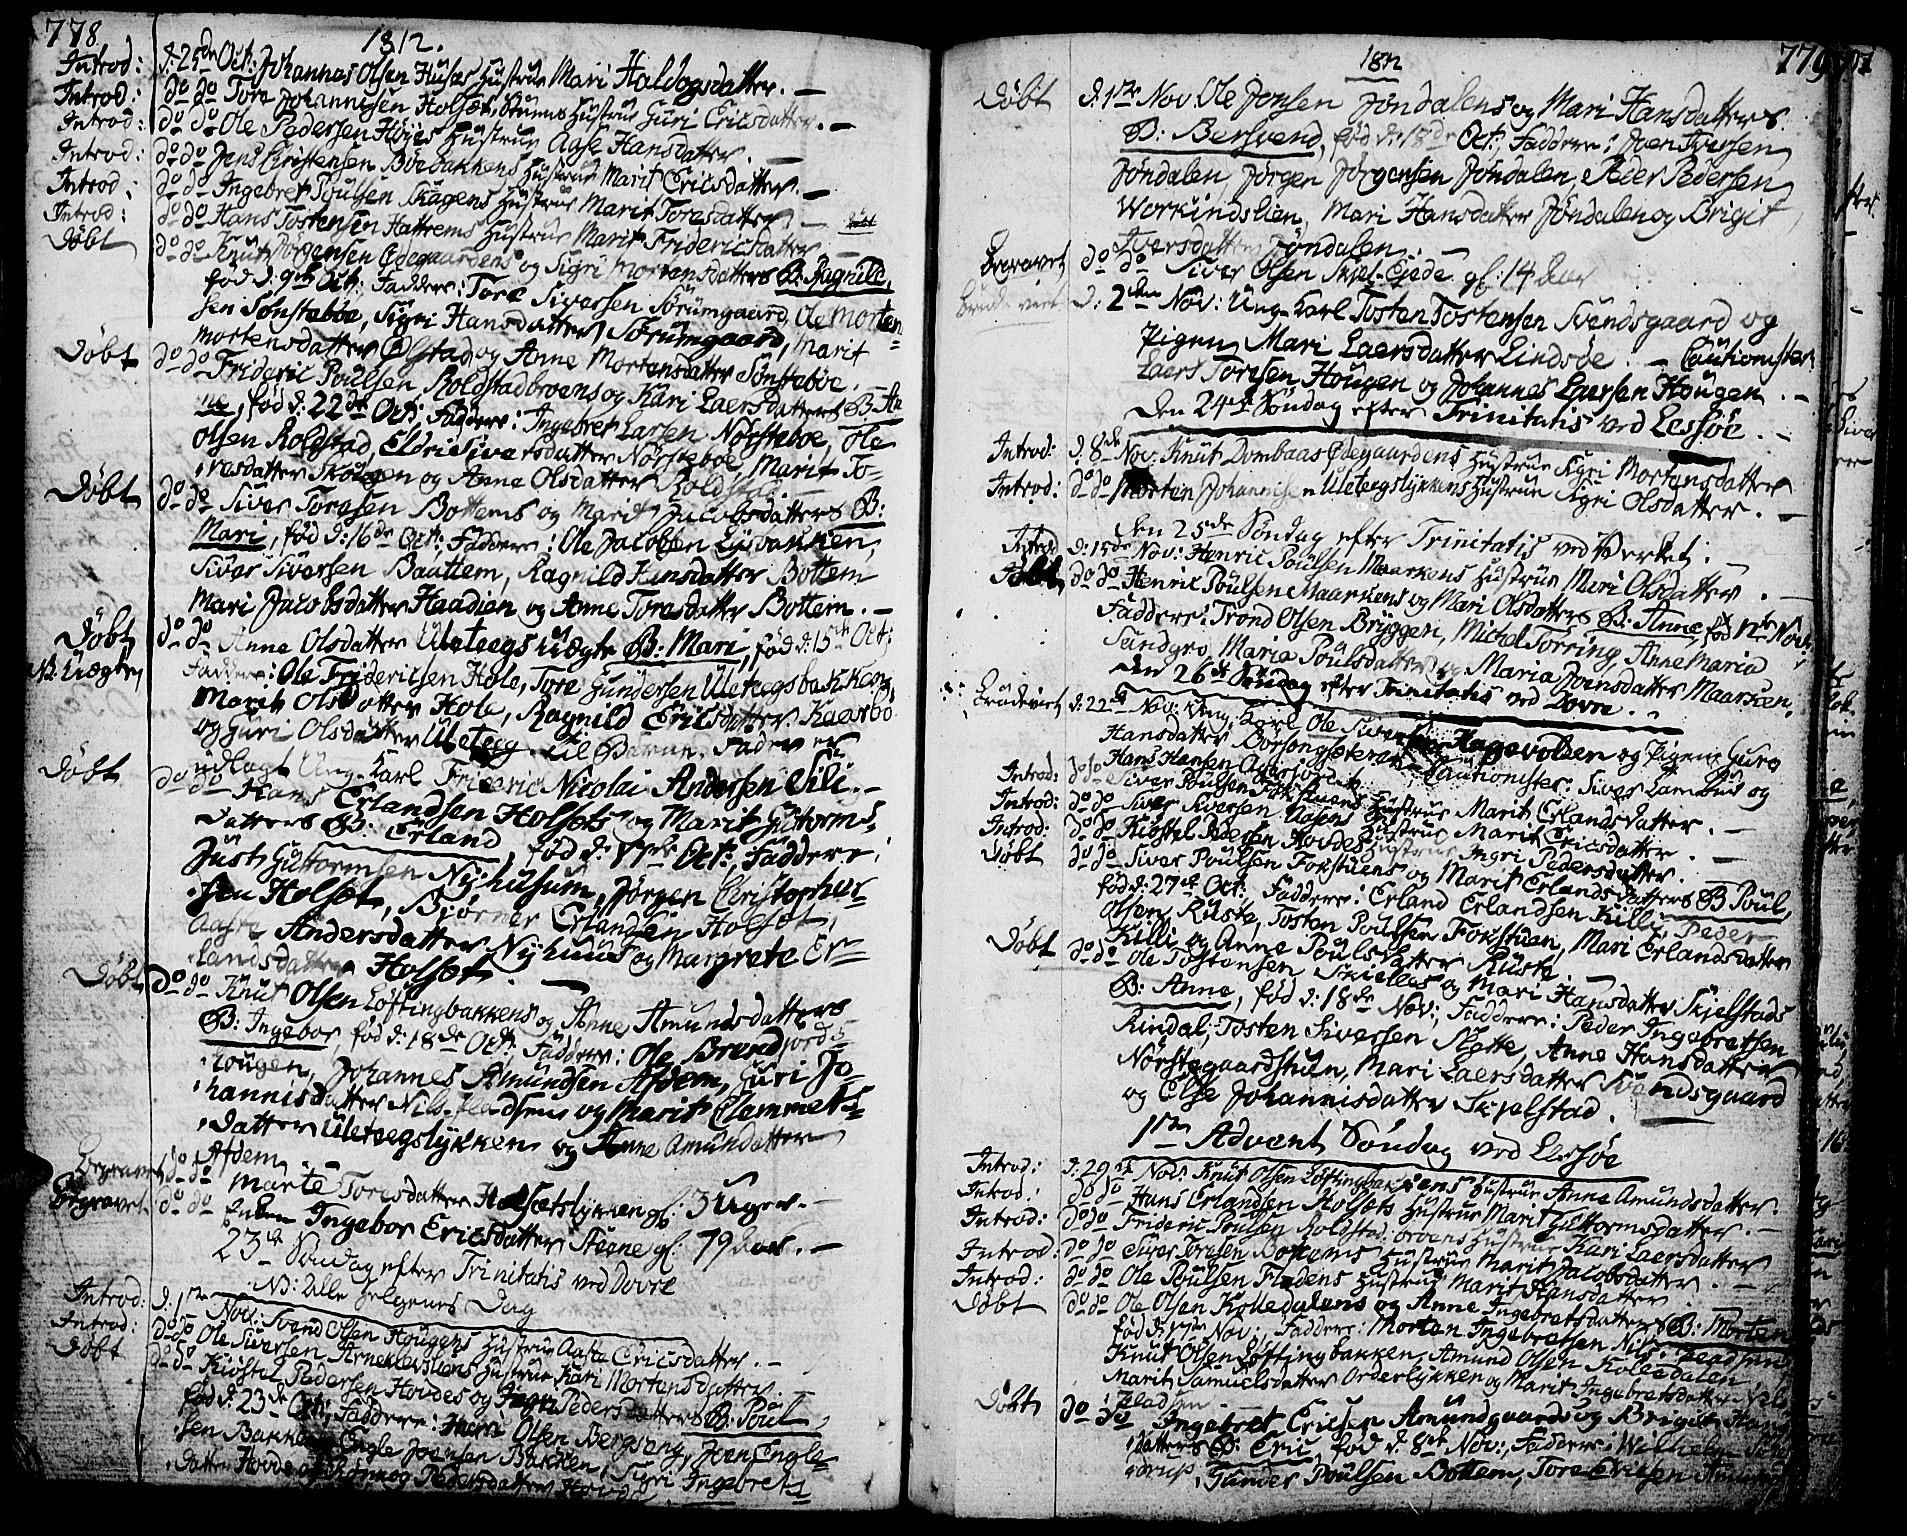 778
1812.
Introd: d: 25de Oct: Johannes Olsen Husas Hustrue Mari Haldogsdatter. —
Introd: do do Tore Johannisen Holsets Stuens Hustrue Guri Ericsdatter. —
Introd: do do Ole Pedersen Høyes Hustrue Aase Hansdatter. —
Introd: do do Jens Christensen Bøebakkens Hustrue Marit Ericsdatter. —
Introd: do do Ingebret Poulsen Skagens Hustrue Marit Toresdatter. —
Introd: do do Hans Tostensen Hattrems Hustrue Marit Fridericsdatter. —
Døbt do do Knut Jørgensen Ødegaardens og Sigri Mortensdatters B: Ragnild,
fød d: 9de Oct: Faddere: Tore Siversen Sørumgaard, Ole Morten-
sen Sønstebøe, Sigri Hansdatter Sørumgaard, Marit
Mortensdatter Ølstad og Anne Mortensdatter Sønstebøe.
Døbt do do Frideric Poulsen Roldstadbroens og Kari Laersdatters B: An
ne, fød d: 22de Oct: Faddere: Ingebret Larsen Nørstebøe, Ole
Olsen Roldstad, Eldrie Siversdatter Nørstebøe, Marit To-
resdatter Skougen og Anne Olsdatter Roldstad. —
Døbt do do Siver Toresen Bottems og Marit Jacobsdatters B:
Mari, fød d: 16de Oct: Faddere: Ole Jacobsen
Siver Siversen Bauttem, Ragnild Hansdatter Bottem
Mari Jacobsdatter Haadien og Anne Toresdatter Bottem. —
Døbt do do Anne Olsdatter Uleteegs Uægte B: Mari, fød d: 15de Oct:
NB. Uægte Faddere: Ole Fridericsen Hole, Tore Gundersen Uleteegsbakken,
Marit Olsdatter Hole, Ragnild Ericsdatter Kaarbø
og Guri Olsdatter Uleteeg. Til Barne-Fader er
udlagt Ung-Karl Frideric Nicolai Andersen Lili. —
Døbt do do Hans Erlandsen Holsets og Marit Guttorms-
datters B: Erland fød d: 17de Oct: Faddere:
Just Guttormsen Nyhusum, Jørgen Christopher-
sen Holset, Bjørner Erlandsen Holset,
Andersdatter Nyhuus og Margrete Er-
landsdatter Holset. —
Døbt do do Knut Olsen Løftingbakkens og Anne Amundsdatters
B: Ingebor, fød d: 18de Oct: Faddere: Ole Brend
hougen, Johannes Amundsen Afdem, Guri Jo-
hannisdatter Nils-Pladsen og Marit Clammets-
datter Uleteegslykken og Anne Amundatter
Afdem
Begravet do do Marte Toresdatter Holsetslykken gl: 3 Uger. —
Begravet do do Enken Ingebor Ericsdatter Steene gl. 79 Aar. —
23de Søndag efter Trinitatis ved Dovre
NB: Alle Helgenes Dag
Introd: d: 1ste Nov: Svend Olsen Hougens Hustrue Aase Ericsdatter. —
Introd: do do Ole Siversen Arneklevsliens Hustrue Kari Mortensdatter. —
Døbt do do Kiøstel Pedersen Hovdes og Ingri Pedersdatters B: Poul,
fød d: 23de Oct: Faddere: Hans Olsen Bergseng, Joen Engle-
sen Bakken, Engle Joensen Bakken, Sigri Ingebrets-
datter Hovde og Rønnog Pedersdatter Hovde

779
1812
Døbt d: 1ste Nov Ole Jonsen Jøndalens og Mari Hansdatters
B: Bersvend, fød d: 18de Oct: Faddere: Joen Iversen
Jøndalen, Jørgen Jørgensen Jøndalen, Peder Pedersen
Workindslien, Mari Hansdatter Jøndalen og Brigit
Iversdatter Jøndalen. —
Begravet do do Siver Olsen Skjel-Ejede gl: 14 Aar
d: 2den Nov: Ung-Karl Tosten Tostensen Svendsgaard og
Pigen Mari Laersdatter Lindsøe. — Cautionister:
Laers Toresen Hougen og Johannes Laersen Hougen. —
Den 24de Søndag efter Trinitatis ved Lessøe. —
Introd: d: 8de Nov: Knut Dombaas Ødegaardens Hustrue Sigri Mortensdatter
Introd: do do Morten Johannisen Uleteegslykkens Hustrue Sigri Olsdatter. —
Den 25de Søndag efter Trinitatis ved Værket. —
Introd d: 15de Nov: Henric Poulsen Maarkens Hustrue Mari Olsdatter. —
Døbt do do Henric Poulsen Maarkens og Mari Olsdatters B: Anne, fød 12te Nov:
Faddere: Trond Olsen Bryggen, Michel Torring, Anne Maria
Sandgro, Maria Poulsdatter og Maria Joensdatter Maarken.
Den 26de Søndag efter Trinitatis ved Dovre. —
Brudeviet d: 22de Nov: Ung-Karl Ole Siversen Hagevolden og Pigen Guro
Hansdatter Børsongsæteren. Cautionister: Siver Lambus og
Hans Hansen
Introd: do do Siver Poulsen Fokstuens Hustrue Marit Erlandsdatter. —
Introd: do do Siver Siversen Hustrue Marit Ericsdatter. —
Introd: do do Kiøstel Pedersen Hovdes Hustrue Ingri Pedersdatter. —
Døbt do do Siver Poulsen Fokstuens og Marit Erlandsdatters B Poul,
fød d: 27de Oct: Faddere: Erland Erlandsen Killi, Peder
Olsen Ruste, Tosten Poulsen Fokstuen, Mari Erlandsdatter
Killi og Anne Poulsdatter Ruste. —
Døbt do do Ole Tostensen Skielles og Mari Hansdatter Skjelstads
B: Anne, fød d: 18de Nov: Faddere: Peder Ingebretsen
Rindal, Tosten Siversen Slette, Anne Hansdatter
Nørstegaardstuen, Mari Laersdatter Svendsgaard
og Else Johannisdatter Skjelstad. —
1ste Advent Søndag ved Lessøe
Introd: d: 29de Nov: Knut Olsen Løftingbakkens Hustrue Anne Amundsdatter.
Introd: do do Hans Erlandsen Holsets Hustrue Marit Guttormsdatter. —
Introd: do do Frideric Poulsen Roldstadbroens Hustrue Kari Laersdatter
Introd: do do Siver Toresen Bottems Hustrue Marit Jacobsdatter. —
Introd: do do Ole Poulsen Flidens Hustrue Marit Hansdatter. —
Døbt do do Ole Olsen Kolledalens og Anne Ingebretsdatters B: Morten
fød d: 17de Nov: Faddere: Morten Ingebretsen Nils-Pladsen,
Knut Olsen Løftingbakken, Amund Olsen Kolledalen,
Marit Samuelsdatter Orderlykken og Marit Ingebretsdatter Nils-
Pladsen. —
Døbt do do Ingebret Ericsen Amundgaards og Brigit Hans
datters B: Eric, fød d: 8de Nov: Faddere: Wilhelm
Gunder Poulsen Bottem, Tore Ericsen Amund